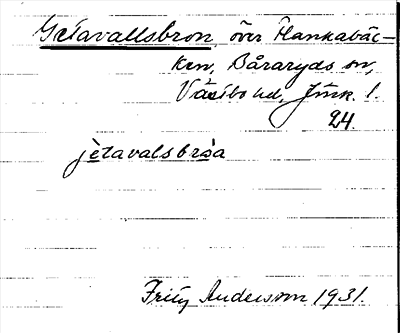 Getavallsbron, över Flankabäc-
ken, Båraryds sn,
Västbo hd, Jönk. l.
24.
jètavalsbròa
Fritz Anderson 1931.